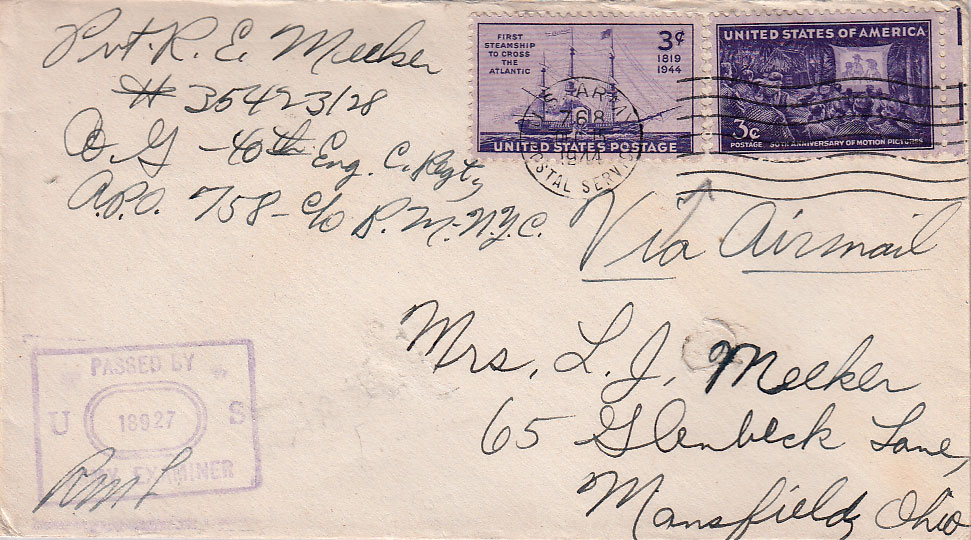 Pvt. R. E. Meeker
# 35423128
Co G - 40th Eng. C. Regt,
A.P.O. 758 - c/o P.M. N.Y.C.
FIRST
STEAMSHIP
TO CROSS
THE
ATLANTIC
3¢
1819
1944
UNITED STATES POSTAGE
UNITED STATES OF AMERICA
3c
POSTAGE 50TH ANNIVERSARY OF MOTION PICTURES
U.S. ARMY
768
1944
POSTAL SERVICE
Via Airmail
Mrs. L. J. Meeker
65 Glenbeck Lane,
Mansfield, Ohio
PASSED BY
U 18927 S
ARMY EXAMINER